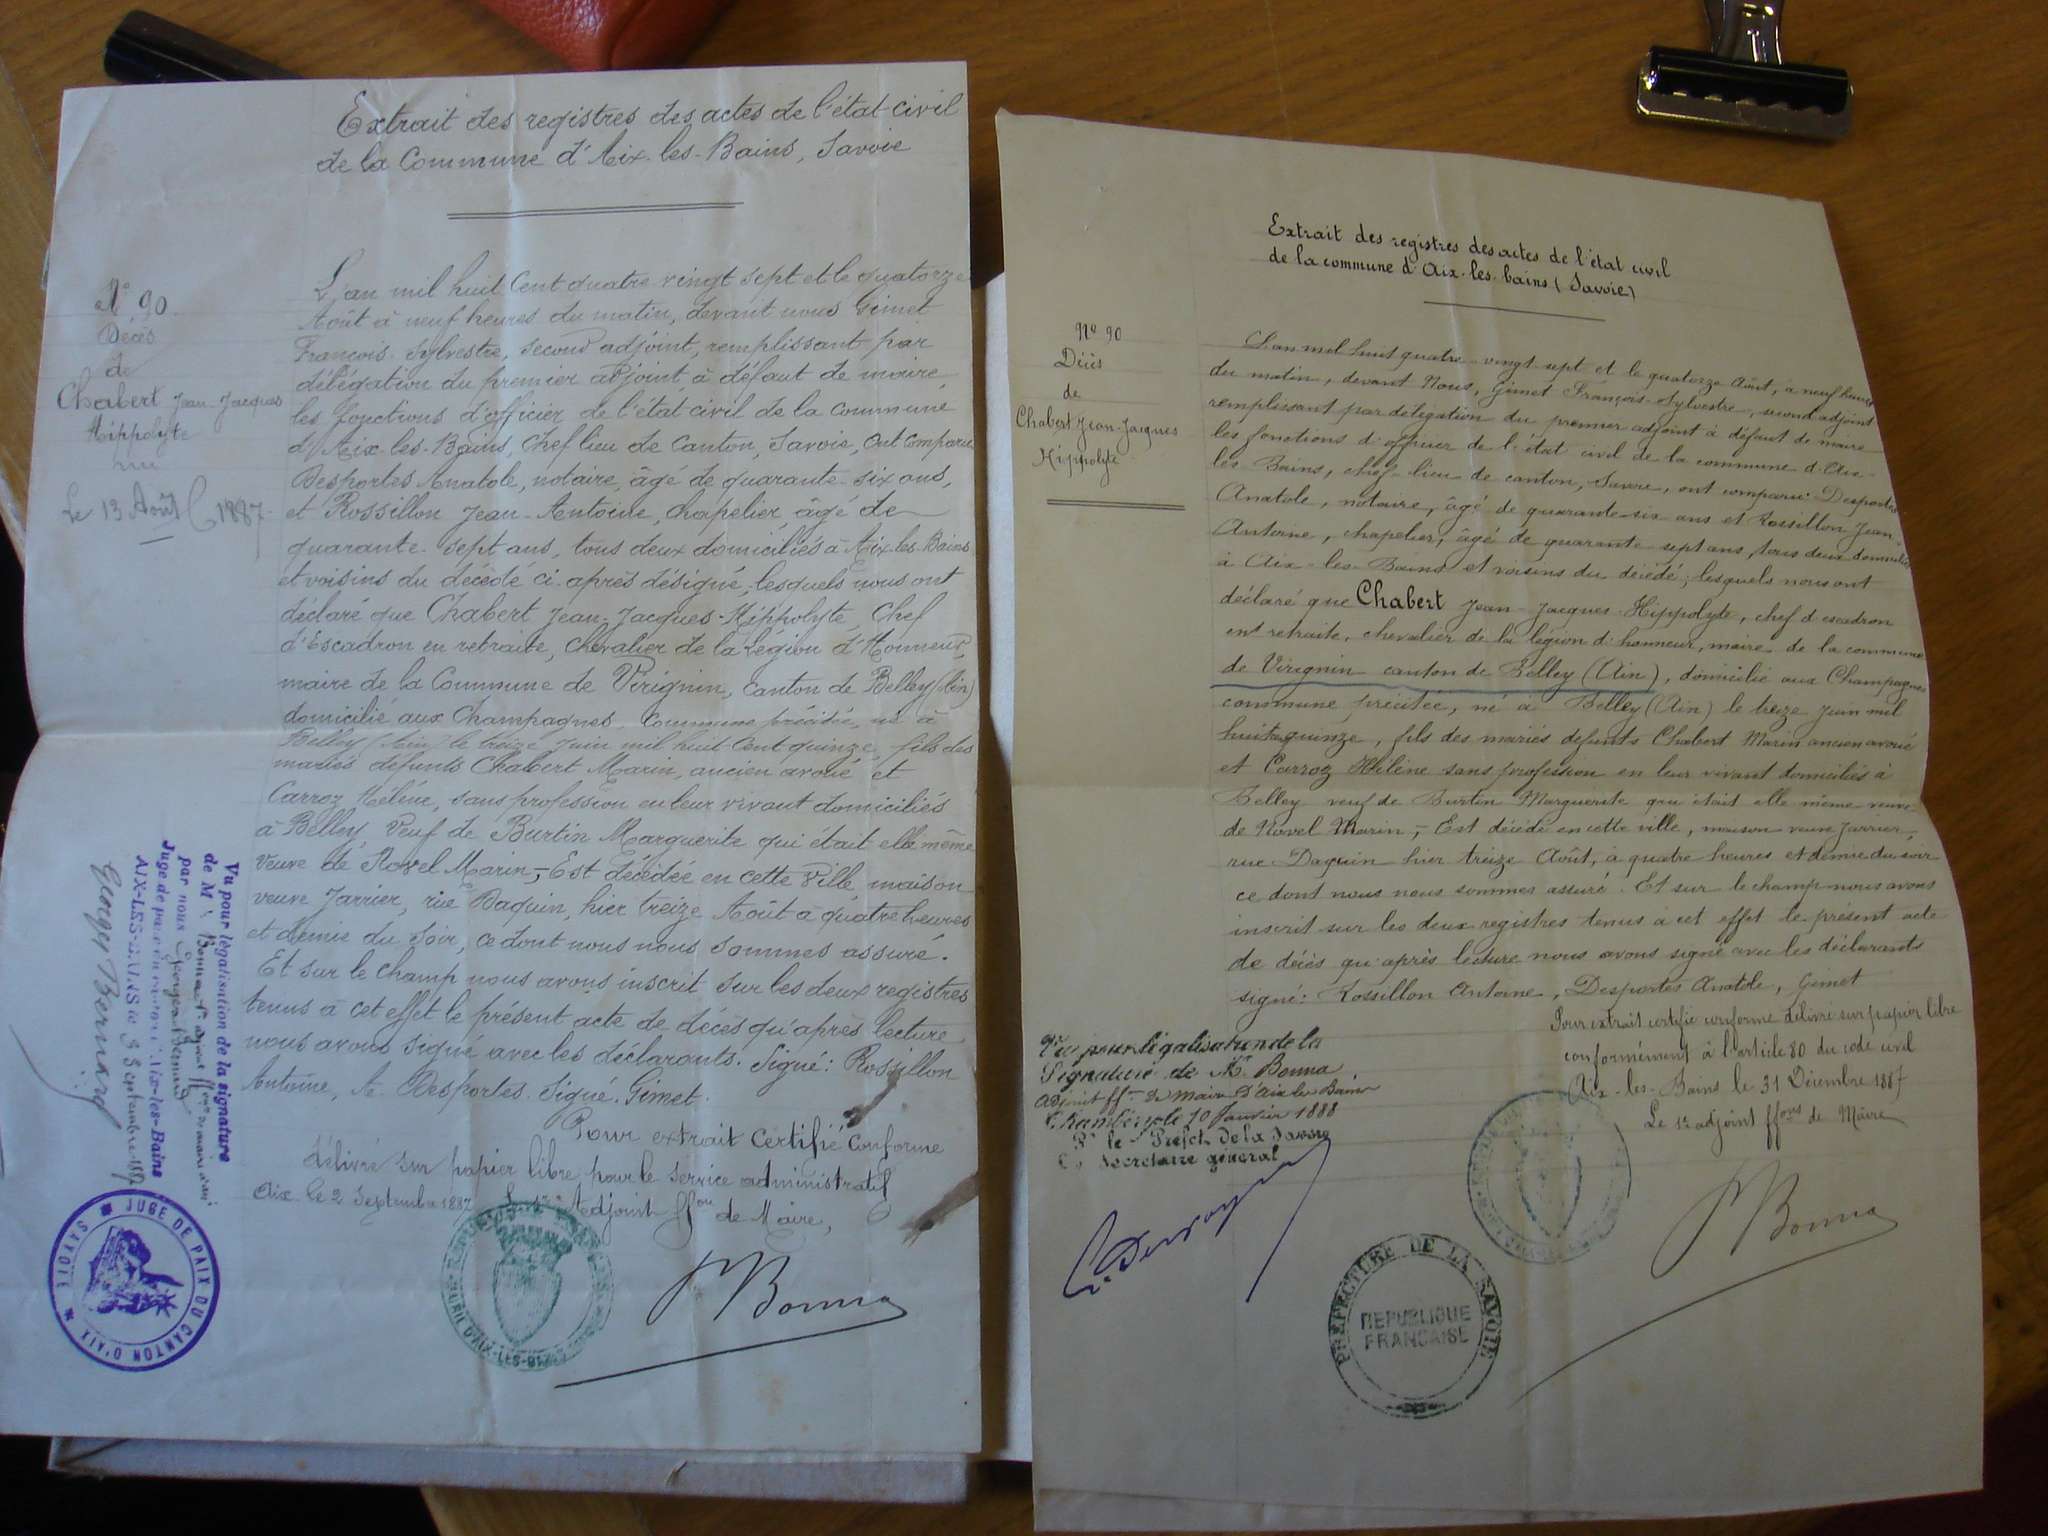 Extrait des registres des actes de l'état civil
de la Commune d'Aix-les-Bains, Savoie
N° 90.
Décès
de
Chabert Jean-Jacques
Hippolyte
Le 13 Août 1887
L'an mil huit Cent quatre vingt sept et le quatorze
Août à neuf heures du matin, devant nous Gimet
François-Sylvestre, second adjoint, remplissant par
délégation du premier adjoint à défaut de maire,
les fonctions d'officier de l'état civil de la commune
d'Aix-les-Bains, Chef lieu de Canton, Savoie, ont comparu
Desportes Anatole, notaire, âgé de quarante-six ans,
et Rossillon Jean-Antoine, chapelier, âgé de
quarante-sept ans, tous deux domiciliés à Aix-les-Bains
et voisins du décédé ci-après désigné, lesquels nous ont
déclaré que Chabert Jean-Jacques-Hippolyte, Chef
d'Escadron en retraite, Chevalier de la Légion d'Honneur,
maire de la Commune de Virignin, canton de Belley (Ain)
domicilié aux Champagnes, Commune précitée, né à
Belley (Ain) le treize Juin mil huit Cent quinze, fils des
mariés défunts Chabert Marin, ancien avoué et
Carroz Hélène, sans profession en leur vivant domiciliés
à Belley, Veuf de Burtin Marguerite qui était elle même
veuve de Rovel Marin,- Est décédée en cette Ville, maison
veuve Jarrier, rue Daquin, hier treize Août à quatre heures
et demie du Soir, ce dont nous nous sommes assuré.
Et sur le champ nous avons inscrit sur les deux registres
tenus à cet effet le présent acte de décès qu'après lecture
nous avons signé avec les déclarants. Signé: Rossillon
Antoine, A. Desportes. Signé. Gimet.
Pour extrait Certifié Conforme
délivré sur papier libre pour le service administratif
Aix le 2 Septembre 1887
Adjoint ffons de Maire,
Bonna
Vu pour légalisation de la signature
de M. Bonna
par nous Georges Bernard
Juge de paix du canton d'Aix-les-Bains
AIX-LES-BAINS le 3 Septembre 1887
Georges Bernard
JUGE DE PAIX DU CANTON D'AIX
SAVOIE
Extrait des registres des actes de l'état civil
de la commune d'Aix-les-bains (Savoie)
N° 90
Décès
de
Chabert Jean-Jacques
Hippolyte
L'an mil huit quatre-vingt sept et le quatorze Août, à neuf heures
du matin, devant Nous, Gimet François-Sylvestre, second adjoint
remplissant par délégation du premier adjoint à défaut de maire
les fonctions d'officier de l'état civil de la commune d'Aix-
les-Bains, chef-lieu de canton, Savoie, ont comparu: Desportes
Anatole, notaire, âgé de quarante-six ans et Rossillon Jean-
Antoine, chapelier, âgé de quarante-sept ans, tous deux domiciliés
à Aix-les-Bains et voisins du décédé; lesquels nous ont
déclaré que Chabert Jean-Jacques-Hippolyte, chef d'escadron
en retraite, chevalier de la légion d'honneur, maire de la commune
de Virignin canton de Belley (Ain), domicilié aux Champagnes
commune précitée, né à Belley (Ain) le treize Juin mil
huit quinze, fils des mariés défunts Chabert Marin ancien avoué
et Carroz Hélène sans profession en leur vivant domiciliés à
Belley veuf de Burtin Marguerite qui était elle même veuve
de Rovel Marin,- Est décédé en cette ville, maison veuve Jarrier,
rue Daquin hier treize Août, à quatre heures et demie du soir
ce dont nous nous sommes assuré. Et sur le champ nous avons
inscrit sur les deux registres tenus à cet effet le présent acte
de décès qu'après lecture nous avons signé avec les déclarants
signé: Rossillon Antoine, Desportes Anatole, Gimet
Pour extrait certifié conforme délivré sur papier libre
conformément à l'article 80 du code civil
Aix-les-Bains le 31 Décembre 1887
Le 1er adjoint ffons de Maire
Bonna
Vu pour légalisation de la
Signature de M. Bonna
Adjoint ff. de Maire d'Aix les Bains
Chambéry le 10 Janvier 1888
Pr le Préfet de la Savoie
Le Secrétaire général
PREFECTURE DE LA SAVOIE
REPUBLIQUE
FRANCAISE